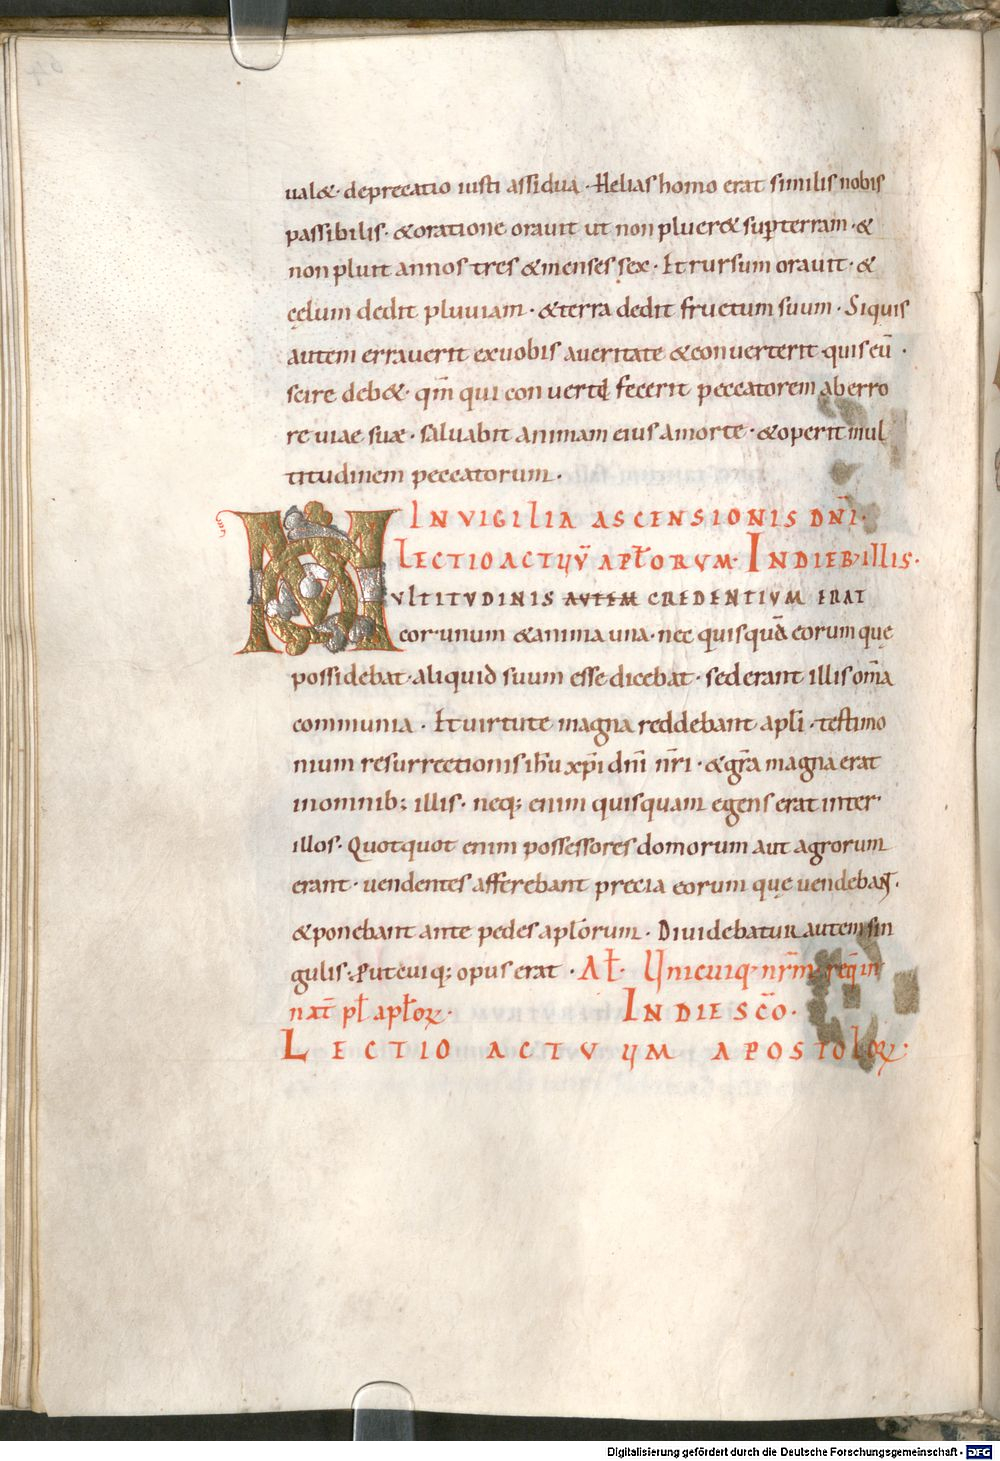 ual& deprecatio iusti assidua · Helias homo erat similis nobis
passibilis · & oratione orauit ut non pluer& sup terram · &
non pluit annos tres & menses sex · Et rursum orauit · &
cęlum dedit pluuiam · & terra dedit fructum suum · Siquis
autem errauerit ex uobis a ueritate & conuerterit quis eū ·
scire deb& · qm̄ qui conuerti fecerit peccatorem ab erro
re uiae suæ · saluabit animam eius a morte · & operit mul
titudinem peccatorum ·
IN VIGILIA ASCENSIONIS DNI ·
LECTIO ACTUŪ APŁORVM · IN DIEB· illis ·
MVLTITVDINIS AVTEM CREDENTIVM ERAT
cor unum & anima una · nec quisquā eorum quę
possidebat · aliquid suum esse dicebat · sed erant illis om̄a
communia · Et uirtute magna reddebant apłi · testimo
nium resurrectionis ih̄u xp̄i dn̄i nr̄i · & gr̄a magna erat
in omnib; illis · neq; enim quisquam egens erat inter
illos · Quotquot enim possessores domorum aut agrorum
erant · uendentes afferebant precia eorum quę uendebant ·
& ponebant ante pedes apłorum · Diuidebatur autem sin
gulis · Put cuiq; opus erat · Ał · Unicuiq· nr̄m · reqͥ in
nat̄ pł apłoꝝ · IN DIE SC̄O ·
LECTIO ACTVUM APOSTOloꝝ ·
Digitalisierung gefördert durch die Deutsche Forschungsgemeinschaft · DFG